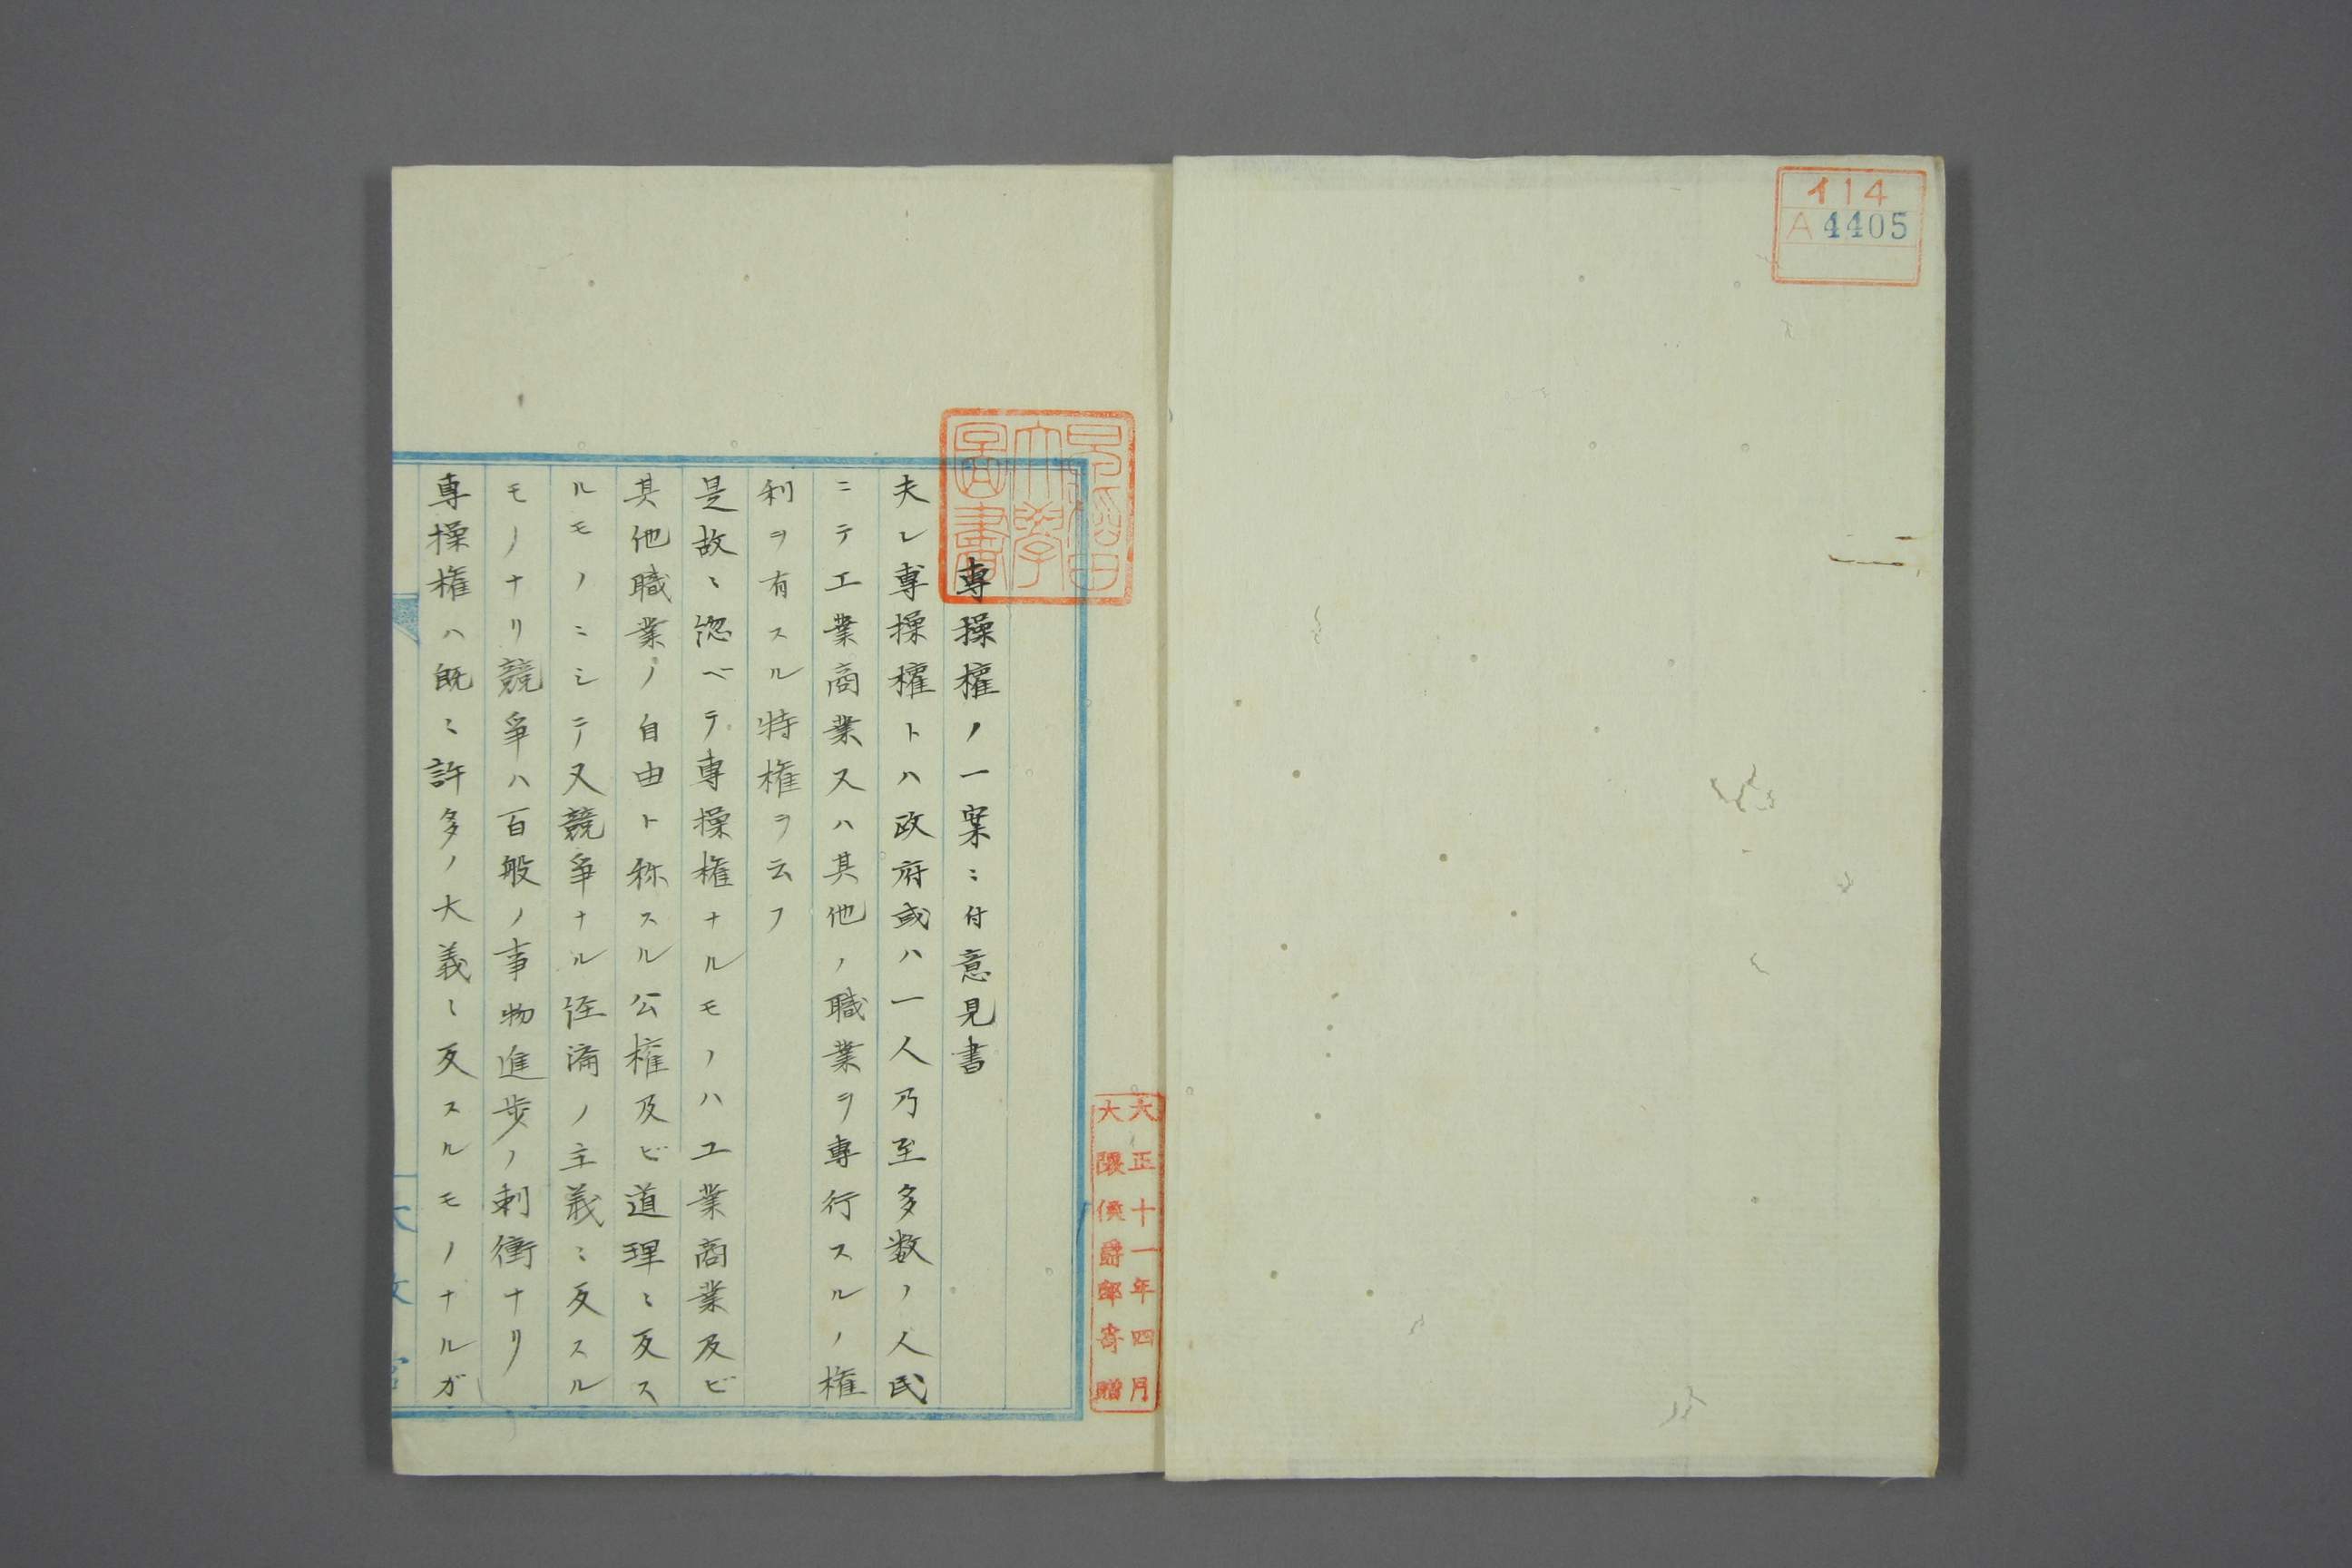 イ14
A4405
早稲田
大學
圖書
大正十一年四月
大隈侯爵邸寄贈
專操權ノ一案ニ付意見書
夫レ專操權トハ政府或ハ一人乃至多数ノ人民
ニテ工業商業又ハ其他ノ職業ヲ專行スルノ権
利ヲ有スル特権ヲ云フ
是故ニ惣ベテ專操権ナルモノハ工業商業及ビ
其他職業ノ自由ト称スル公権及ビ道理ニ反ス
ルモノニシテ又競爭ナル経済ノ主義ニ反スル
モノナリ競爭ハ百般ノ事物進歩ノ刺衝ナリ
專操権ハ既ニ許多ノ大義ニ反スルモノナルガ